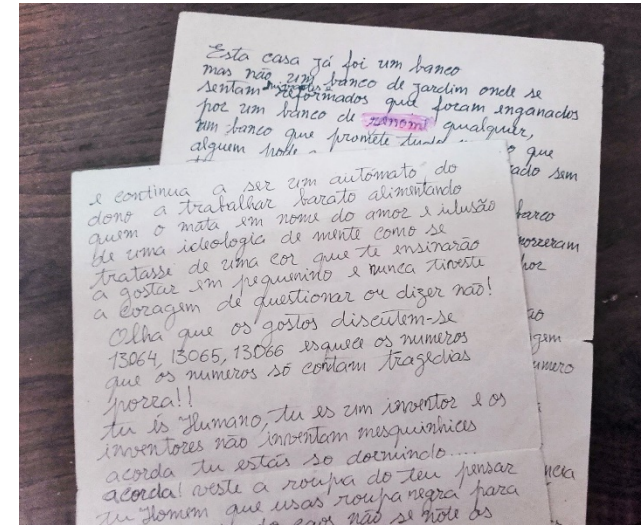 Esta casa já foi um banco
mas não um banco de jardim onde se
sentam reformados que foram enganados
por um banco de renome qualquer,
um banco que promete tudo o que
alguem pode
ado sem
barco
morreram
por
ão
gem
numero
ncia
e continua a ser um autómato do
dono a trabalhar barato alimentando
quem o mata em nome do amor e ilusão
de uma ideologia de mente como se
tratasse de uma cor que te ensinarão
a gostar em pequenino e nunca tiveste
a coragem de questionar ou dizer não!
Olha que os gostos discutem-se
13064, 13065, 13066 esquece os numeros
que os numeros só contam tragédias
porra!!
tu és Humano, tu es um inventor e os
inventores não inventam mesquinhices
acorda tu estás so dormindo.....
acorda! veste a roupa do teu pensar
tu Homem que usas roupa negra para
não se note as